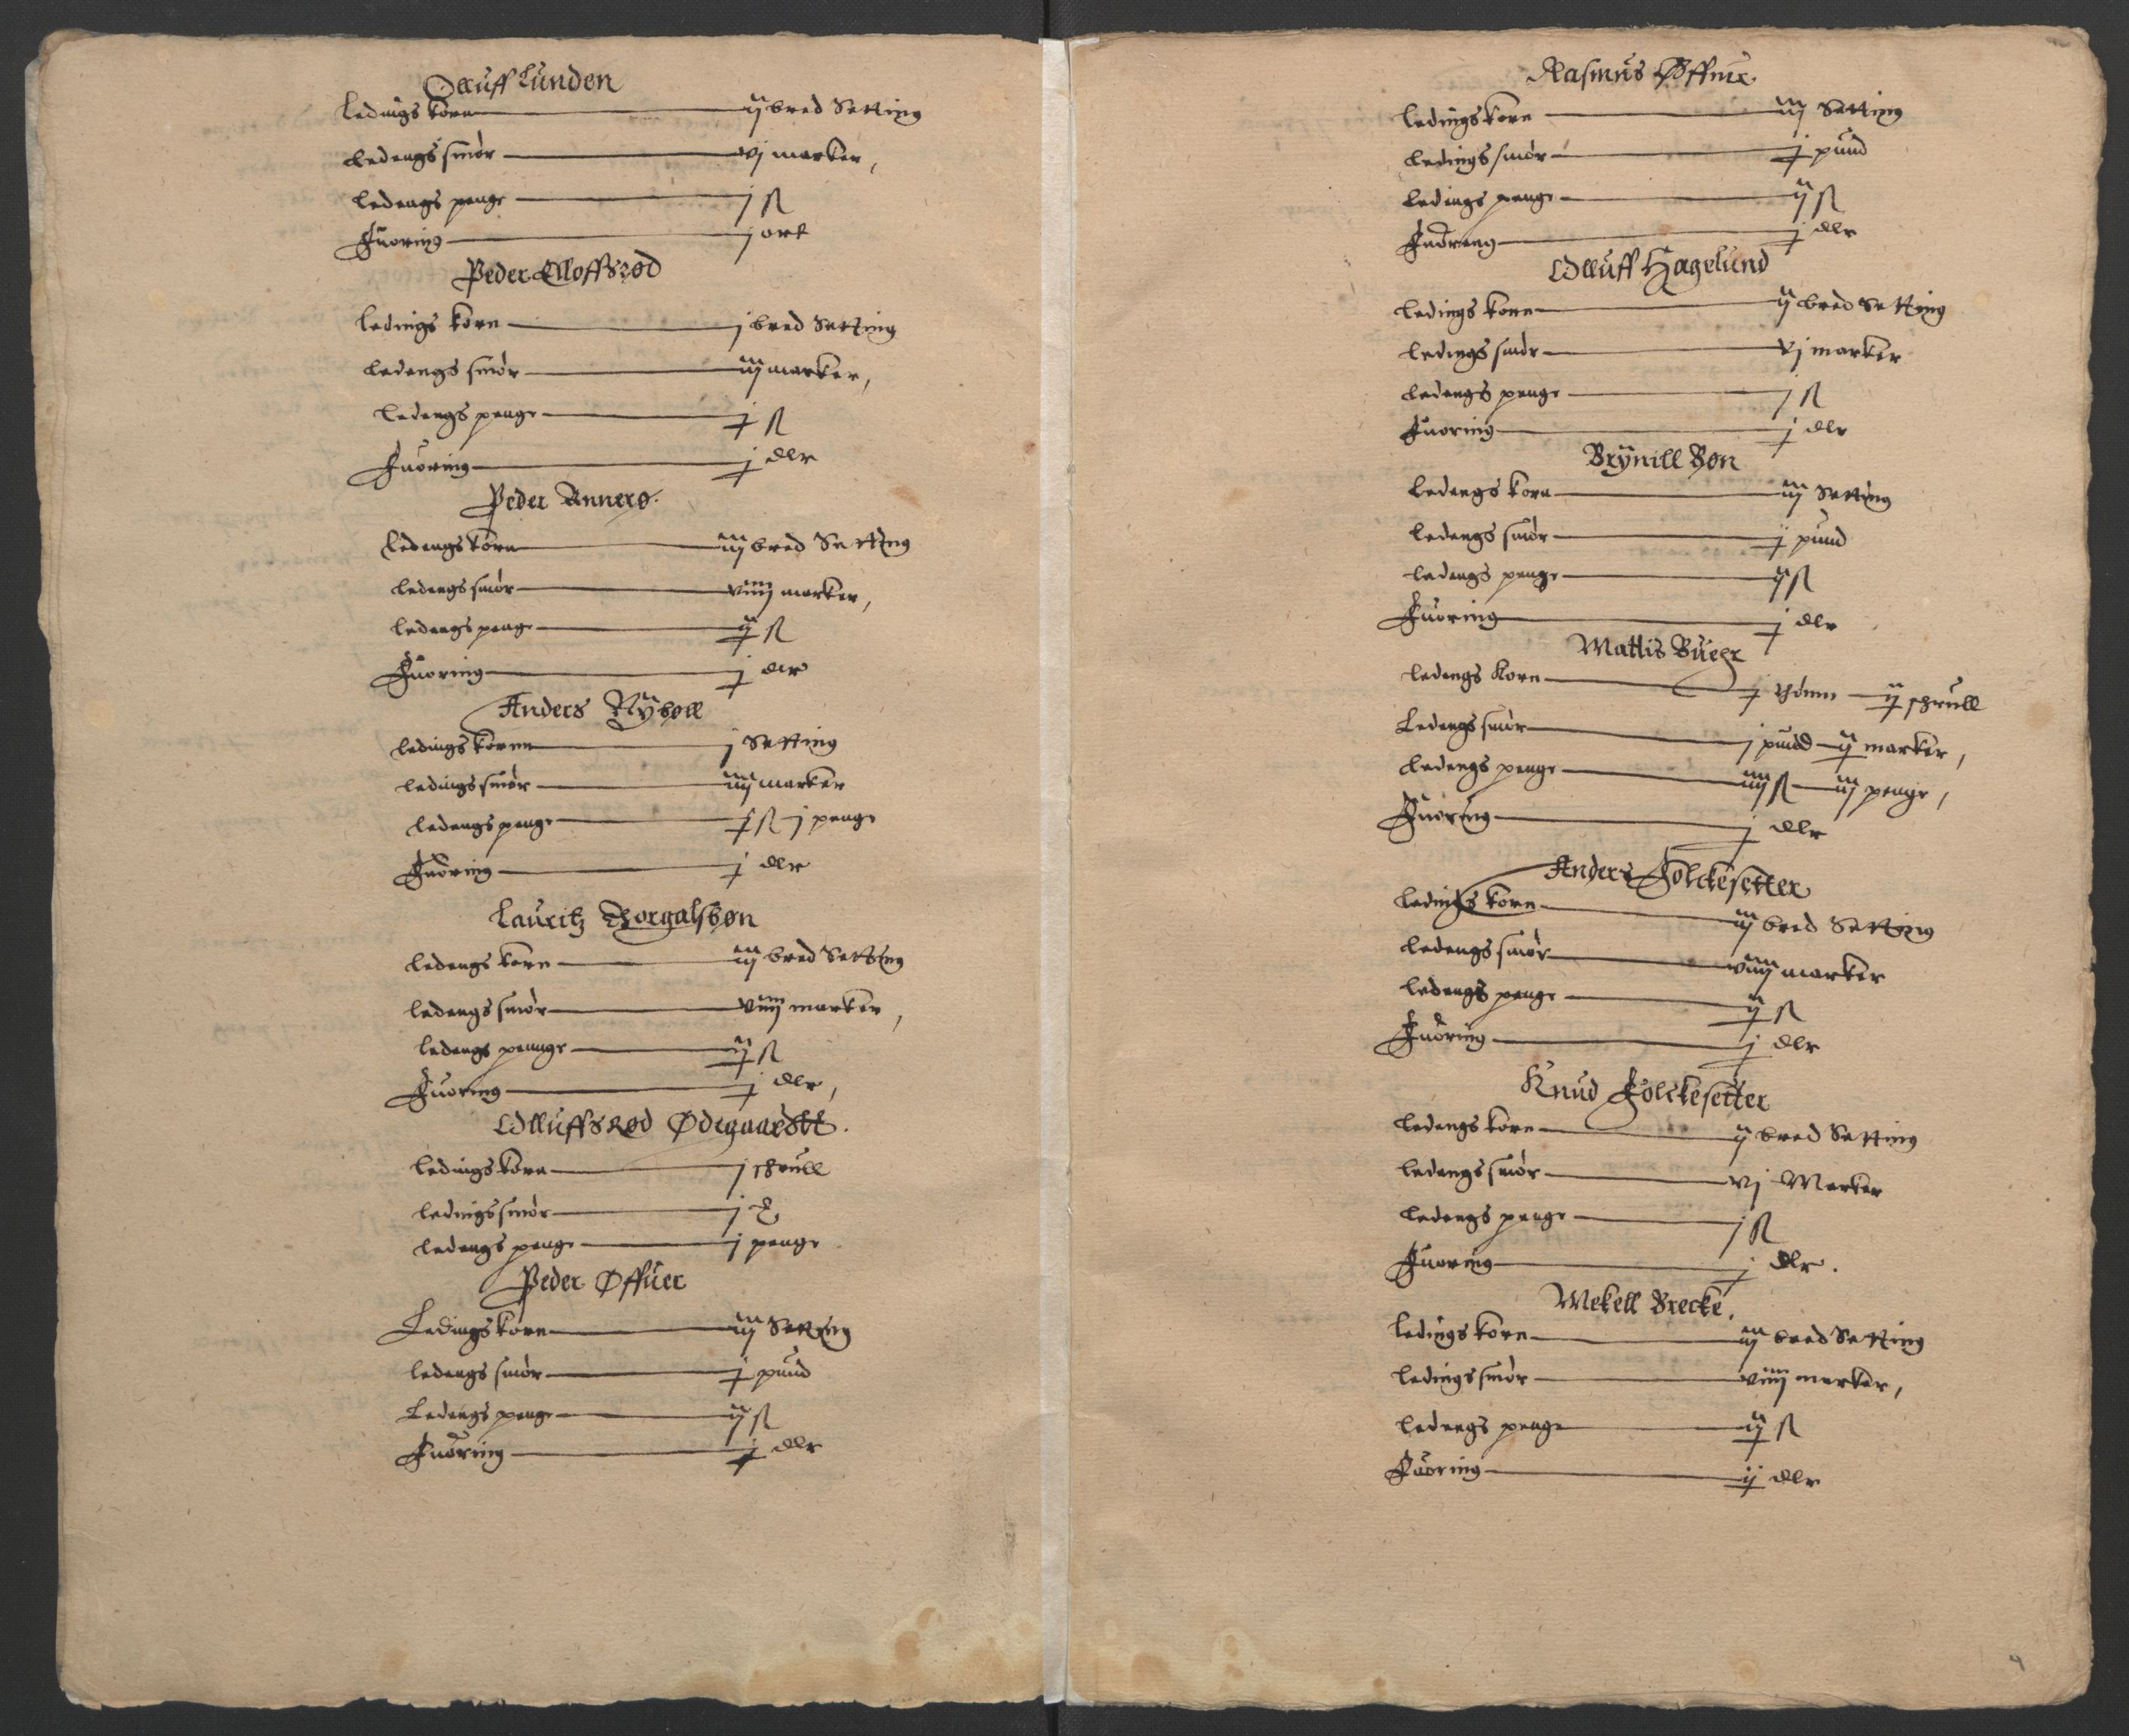 Olluff Lunden
Ledings korn — ij bred Setting
Ledengs smör — vj marker,
Ledengs penge — j ß
Fuoring — j ort
Peder Elloffsrød
Ledings korn — j bred Setting
Ledengs smör — iij marker,
Ledengs penge — j ß
Fuoring — j dlr
Peder Annerø.
Ledengs korn — iij bred Setting
Ledengs smör — viiij marker,
Ledengs penge — ij ß
Fuoring — j dlr
Anders Nÿbøll
Ledings kornn — j Setting
Ledings smör — iiij marker
Ledengs penge — j ß j penge
Fuoring — j dlr
Lauritz Torgalsbøn
Ledengs korn — iij bred Setting
Ledengs smör — viiij marker,
Ledengs pennge — ij ß
Fuoring — j dlr,
Olluffsrød Ødegaardtt.
Ledings korn — j schrull
Ledings smör — j
Ledengs penge — j penge
Peder Øffuer
Ledings korn — iij Setting
Ledengs smör — j pund
Ledengs penge — ij ß
Fuoring — j dlr
Rasmus Øffuer.
Ledings korn — iij Setting
Ledings smör — j pund
Ledings penge — ij ß
Fuoreng — j dlr
Olluff Hagelund
Ledings konn — ij bred Setting
Ledings smör — vj marker
Ledengs penge — j ß
Fuoring — j dlr
Brÿnill Bøn
Ledengs korn — iij Setting
Ledengs smör — j pund
Ledengs penge — ij ß
Fuoring — j dlr
Mattis Buer
Ledengs Korn — j thönn — ij schrull
Ledengs smör — j pundd — ij marker,
Ledengs penge — iiij ß — iij penge,
Fuoring — j dlr
Anders Folckesetter
Ledings korn — iij bred Setting
Ledengs smör — viiij marker
Ledengs penge — ij ß
Fuoring — j dlr
Knud Folckesetter
Ledengs korn — ij bred Setting
Ledengs smör — vj Marker
Ledengs penge — j ß
Fuoring — j dlr.
Mekell Brecke.
Ledings korn — iij bred Setting
Ledings smör — viiij marker,
Ledengs penge — ij ß
Fuoring — ij dlr
4